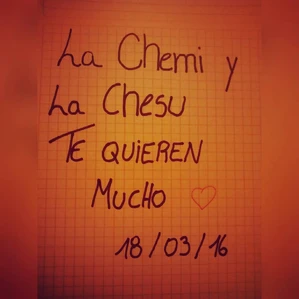 La Chemi y
La Chesu
Te QUIEREN
MUCHO ♡
18/03/16